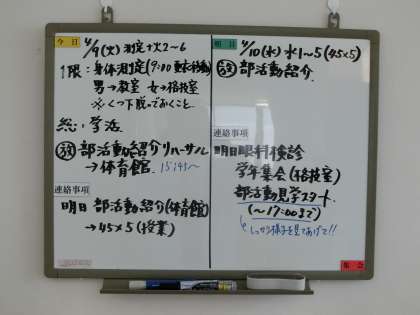 今日 4/9(火) 測定+火2~6
1限:身体測定(9:00 移動)
男→教室 女→格技室
※くつ下脱いでおくこと
総:学活
放 部活動紹介リハーサル
→体育館 15:45~
連絡事項
明日 部活動紹介(体育館)
→45×5(授業)
明日 4/10(水) 水1~5(45×5)
放 部活動紹介
連絡事項
明日眼科検診
学年集会(格技室)
部活動見学スタート
(~17:00まで)
しっかり様子を見てあげて!!
集会